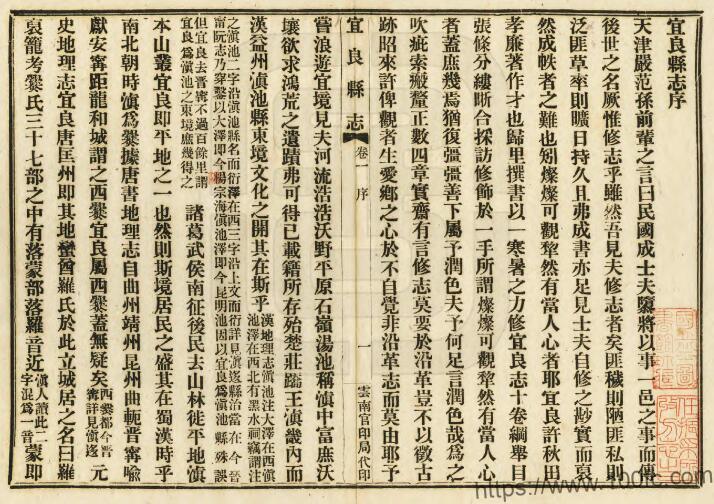 宜良縣志序
天津嚴范孫前輩之言曰民國成士夫隳將以事一邑之事而傳
後世之名厥惟修志乎雖然吾見夫修志者矣匪穢則陋匪私則
泛匪草率則曠日持久且弗成書亦足見士夫自修之尠實而裒
然成帙者之難也矧燦燦可觀犂然有當人心者耶宜良許秋田
孝廉著作才也歸里撰書以一寒暑之力修宜良志十卷綱舉目
張條分縷晰合採訪修飾於一手所謂燦燦可觀犂然有當人心
者蓋庶幾焉猶復彊彊善下屬予潤色夫予何足言潤色哉爲之
吹疵索瘢釐正數四章實齋有言修志莫要於沿革豈不以徵古
跡昭來許俾觀者生愛鄉之心於不自覺非沿革志而莫由耶予
宜良縣志
卷一 序
一
雲南官印局代印
嘗浪遊宜境見夫河流浩浩沃野平原石嶺湯池稱滇中富庶沃
壤欲求鴻荒之遺蹟弗可得已載籍所存殆楚莊蹻王滇畿內而
漢益州滇池縣東境文化之開其在斯乎
漢地理志滇池注大澤在西滇
池澤在西北有黑水祠竊謂注
之滇池二字沿滇池縣名而衍澤在西三字沿上文而衍詳見滇逡縣治當在今晉
甯阮志乃穿鑿以大澤即今楊宗海滇池澤即今昆明池因以宜良爲滇池縣殊誤
但宜良去晉甯不過百餘里謂
宜良爲滇池之東境庶幾得之
諸葛武侯南征後民去山林徙平地滇
本山叢宜良即平地之一也然則斯境居民之盛其在蜀漢時乎
南北朝時滇爲爨據唐書地理志自曲州靖州昆州曲軛晉甯喻
獻安甯距龍和城謂之西爨宜良屬西爨蓋無疑矣
西爨都今晉
甯詳見滇逡
元
史地理志宜良唐匡州即其地蠻酋羅氏於此立城居之名曰羅
裒籠考爨氏三十七部之中有落蒙部落羅音近
滇人讀此二
字混爲一音
蒙即
https://www.100fc.com